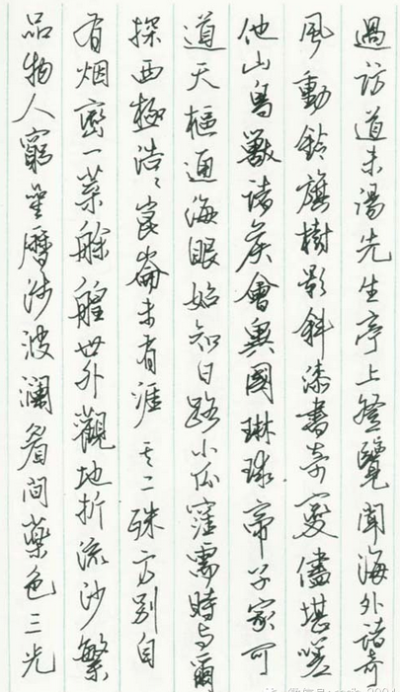 過訪道未湯先生亭上登覽聞海外諸奇
風動鈴旗樹影斜漆書奇變儘堪嗟
他山鳥獸諸侯會異國琳球帝子家可
道天樞通海眼始知日路小瓜窪需時与爾
探西極浩々崑崙未有涯 其二 殊方別自
有烟巒一葉艅艎世外觀地折流沙繁
品物人窮星曆涉波瀾眉間藥色三光